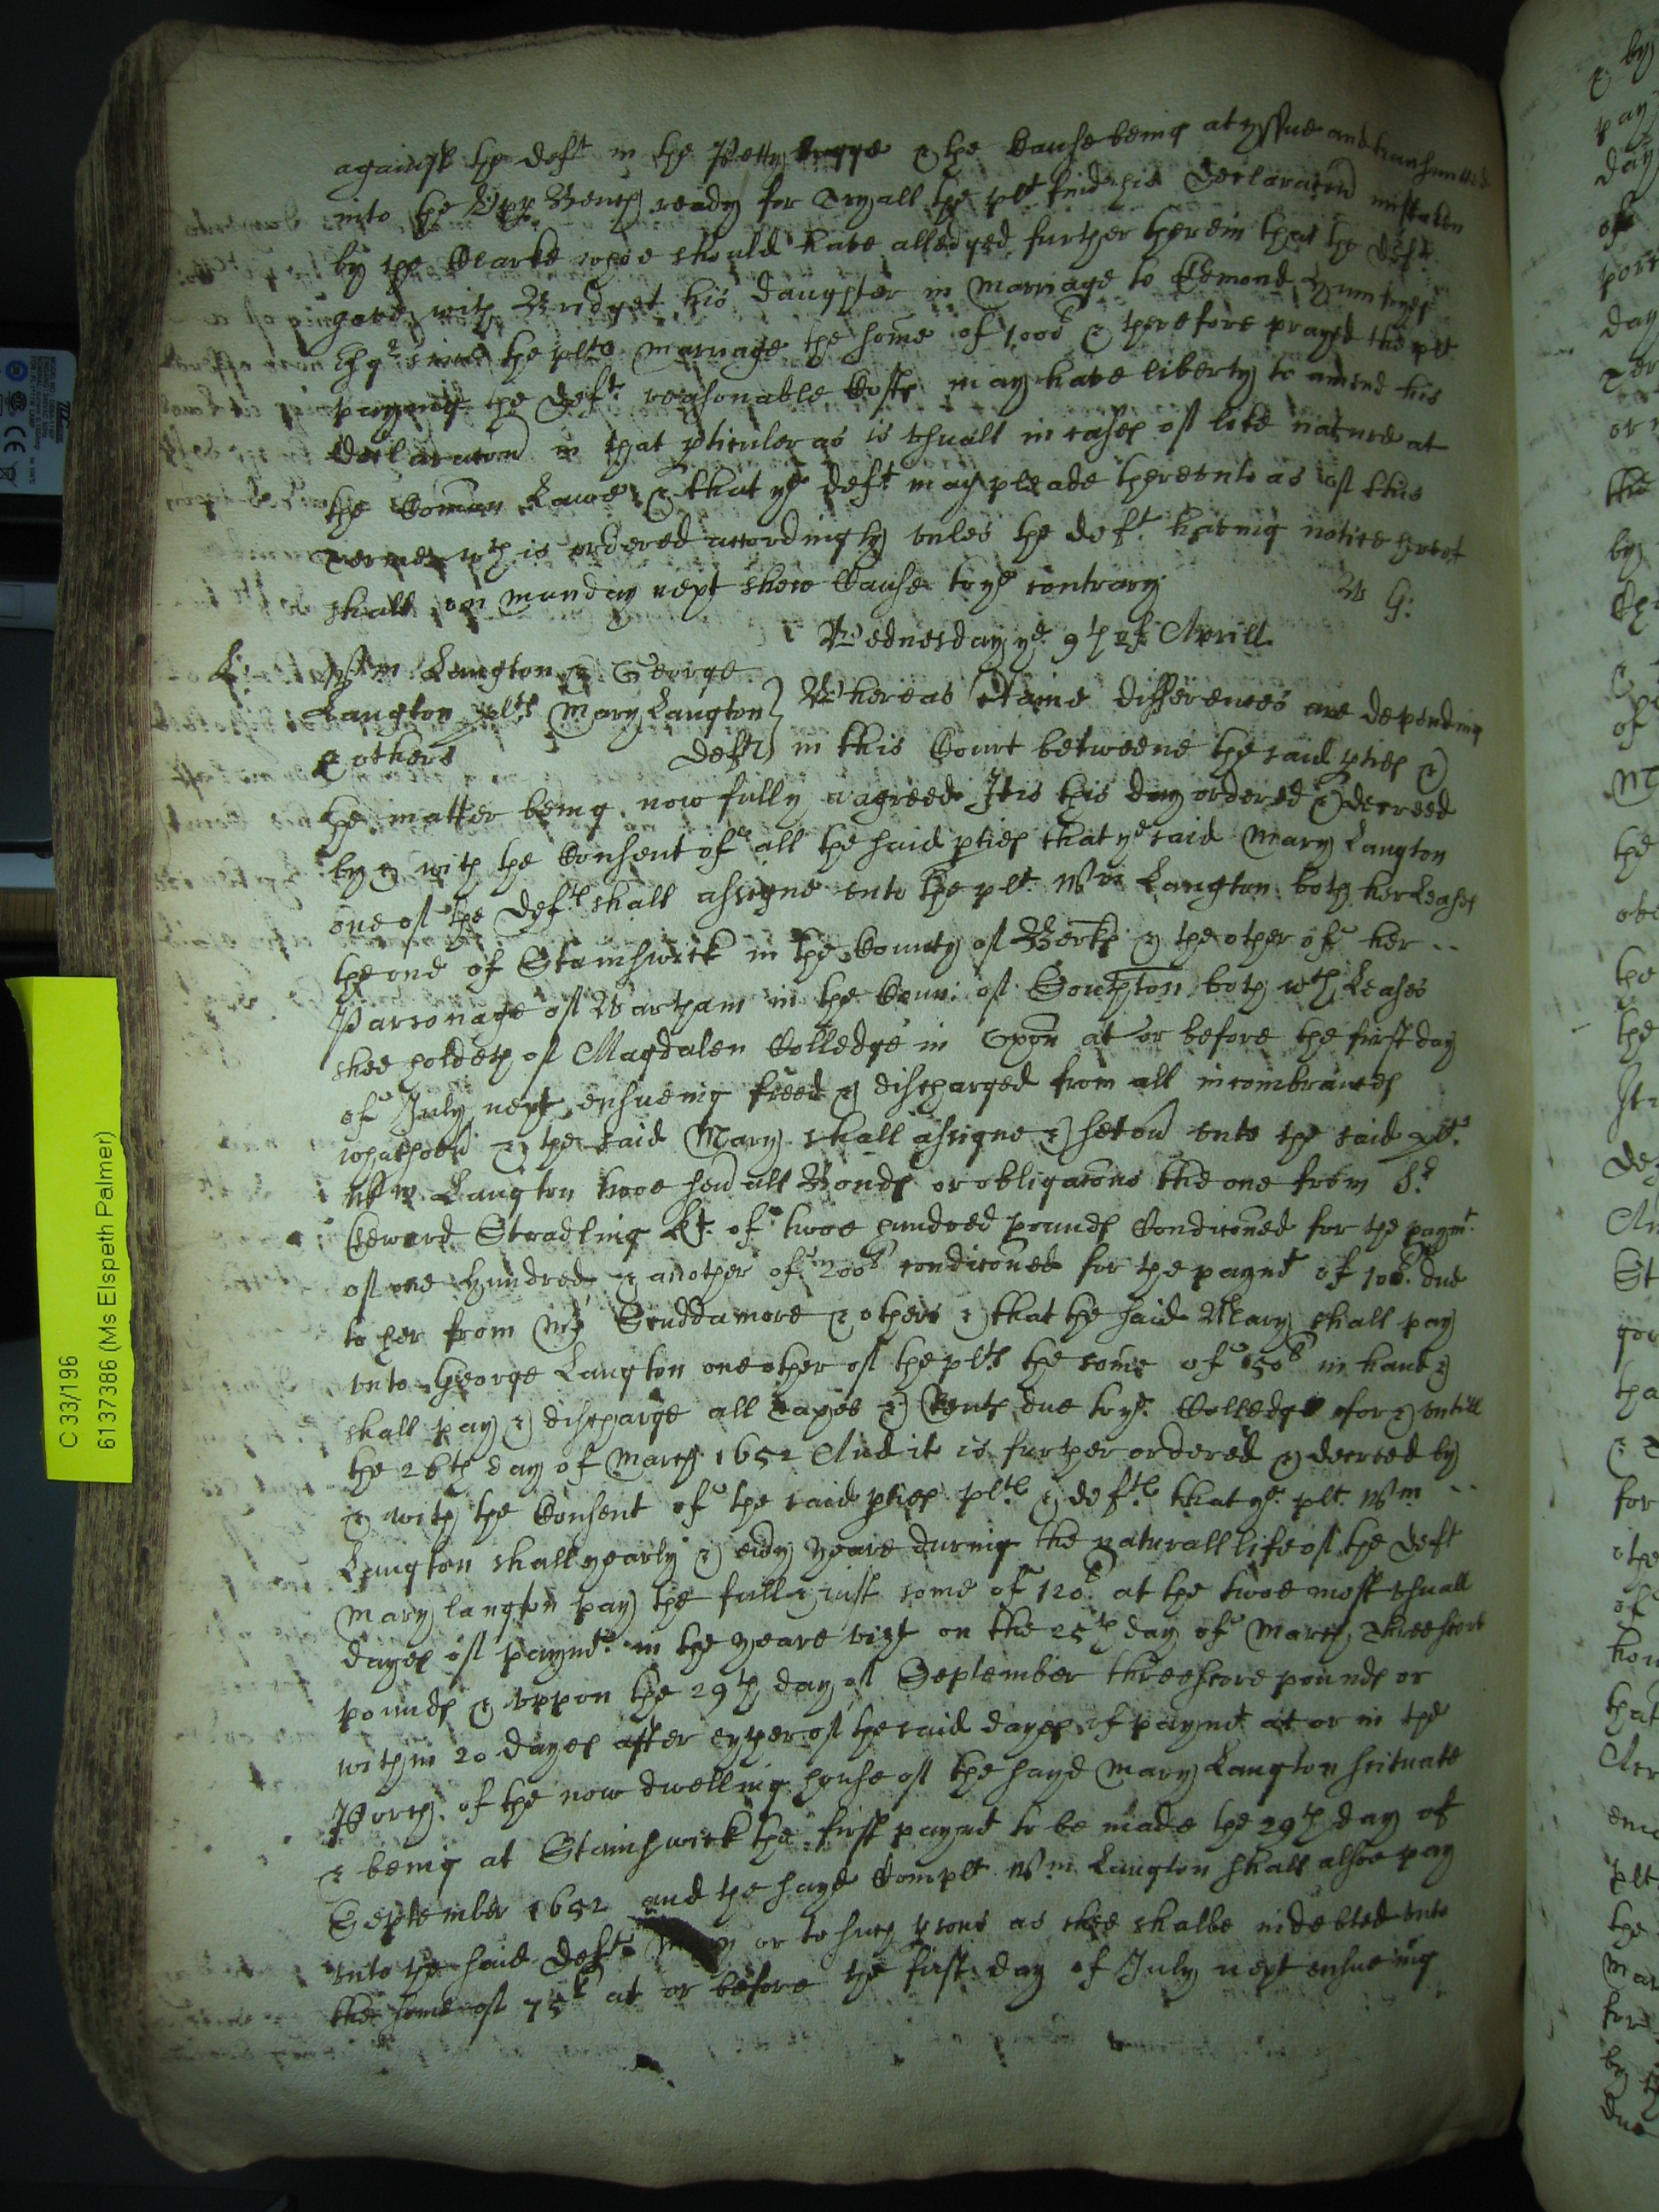 against the deft in the Petty Bagge & the Cause being at yssue and transmitted
into the Vpp Bench ready for Tryall the plt finds his Declaracon mistaken
by the Clarke whoe should have alledged further therein that the deft
gave with Bridget his daughter in Marriage to Edmond
Esqr since the plts marriage the some of 1000l & therefore prayed the plt
payeing the deft reasonable Costs may have liberty to amend his
declaracon in that pticuler as is vsuall in cases of like nature at
the Comon Lawe & that ye deft may pleade therevnto as of this
Terme wch is ordered accordingly vnles the deft haveing notice hereof
shall on munday next shew Cause to ye contrary
W G:
Wednesday ye 9th of Aprill
L: Wm Langton & George
Langton plts Mary Langton
& others defts
Whereas Certaine differences are depending
in this Court betweene the said pties &
the matter being now fully agreed It is this day ordered & decreed
by & with the Consent of all the said pties that ye said Mary Langton
one of the defts shall assigne vnto the plt Wm Langton both her Leases
the one of Stainswick in the County of Berks & the other of her --
Parsonage of in the Coun: of Southton both wch Leases
shee holdeth of Magdalen Colledge in Oxon at or before the first day
of July next ensueing freed & discharged from all incombrances
whatsoevr & the said Mary shall assigne & set ovr vnto the said plt
Wm Langton twoe seuall Bonds or obligacons the one from Sr
Edward Stradling Kt of twoe hundred pounds Condiconed for the paymt
of one hundred & another of 200l condiconed for the paymt of 100l due
to her from Mr Scuddamore & others & that the said Mary shall pay
vnto George Langton one other of the plts the some of 150l in hand &
shall pay & discharge all Taxes & Rents due to ye Colledge for & vntill
the 26th day of March 1652 And it is further ordered & decreed by
& with the Consent of the said pties plts & defts that ye plt Wm --
Langton shall yearly & eviy yeare during the naturall life of the deft
Mary langton pay the full & iust some of 120l at the twoe most vsuall
dayes of paymt in the yeare vizt on the 25th day of March Threescore
pounds & vppon the 29th day of September threescore pounds or
within 20 dayes after eyther of the said dayes of paymt at or in the
Porch of the now dwelling house of the sayd Mary Langton scituate
& being at Stainswick the first paymt to be made the 29th day of
September 1652 and the sayd Complt Wm Langton shall alsoe pay
vnto the said deft Mary or to such psons as shee shalbe indebted vnto
the some of 75l at or before the first day of July next ensueing
C 33/196
6137386 (Ms Elspeth Palmer)